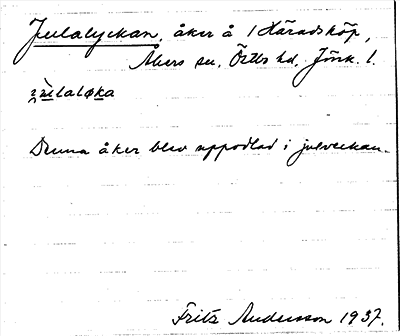 Julalyckan, åker å 1 Häradsköp,
Åkers sn, Östbo hd, Jönk. l.
Denna åker blev uppodlad i julveckan.
Fritz Andersson 1937.